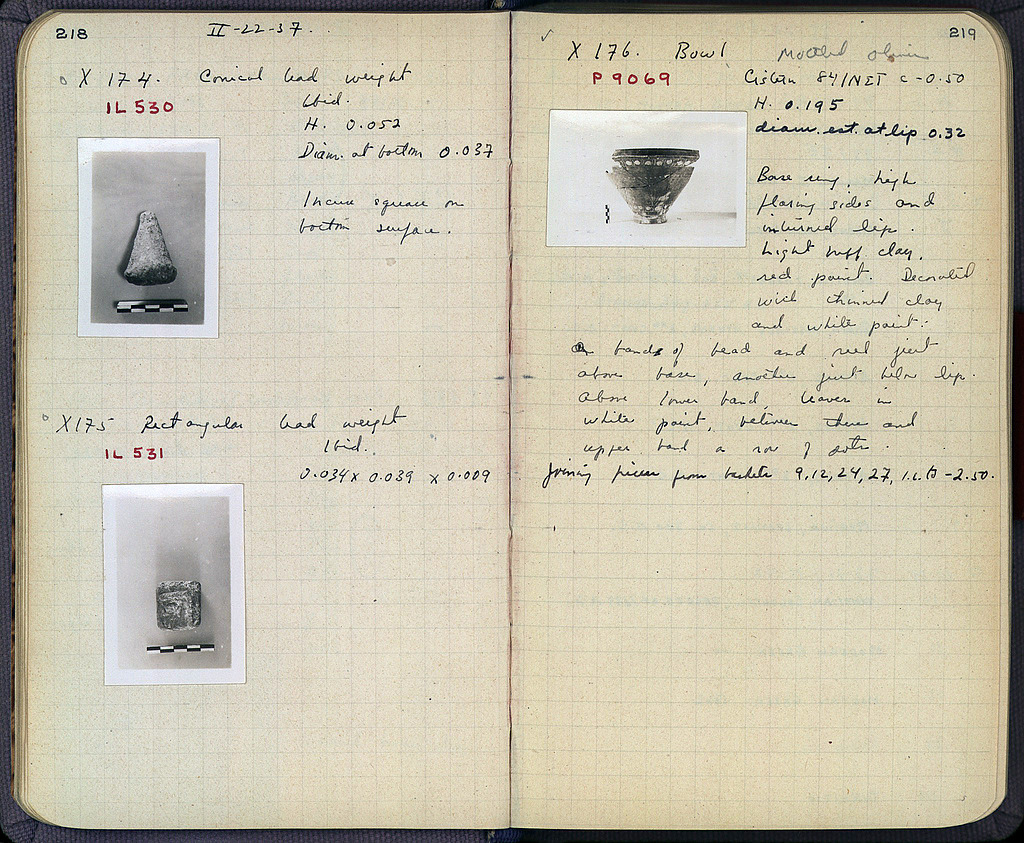 218
II-22-37.
X 174. Conical lead weight
IL 530
Ibid.
H. 0.052
Diam. at bottom 0.037
Incuse square on
bottom surface.
X175 Rectangular lead weight
IL 531
Ibid.
0.034 x 0.039 x 0.009
219
✓ X 176. Bowl
P 9069
Cistern 84/ΝΕΤ C -0.50
H. 0.195
diam. est. at lip 0.32
Base ring, high
flaring sides and
inturned lip.
Light buff clay,
red paint. Decorated
with thinned clay
and white paint:
bands of bead and reel just
above base, another just below lip.
Above lower band, leaves in
white paint, between these and
upper band a row of dots.
Joining pieces from baskets 9, 12, 24, 27, i.e. to -2.50.